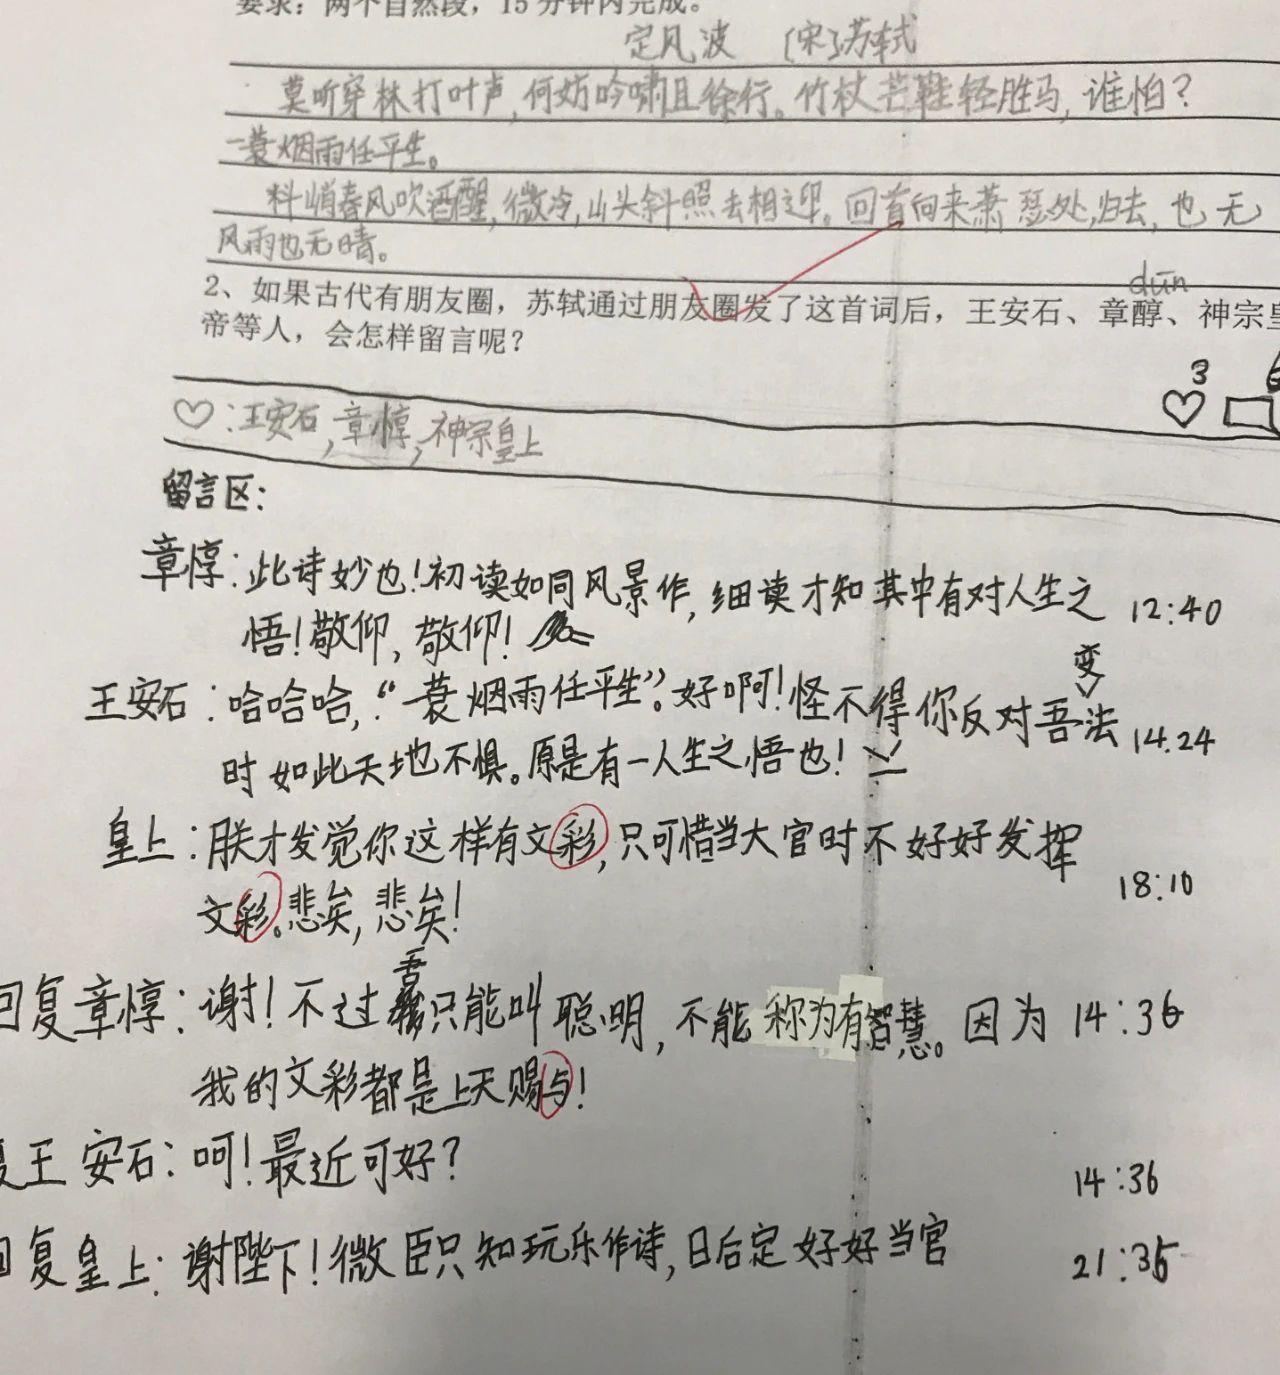 要求：两个自然段，15分钟内完成。
定风波 〔宋〕苏轼
莫听穿林打叶声，何妨吟啸且徐行。竹杖芒鞋轻胜马，谁怕？
一蓑烟雨任平生。
料峭春风吹酒醒，微冷，山头斜照去相迎。回首向来萧瑟处，归去，也无
风雨也无晴。
dūn
2、如果古代有朋友圈，苏轼通过朋友圈发了这首词后，王安石、章醇、神宗皇
帝等人，会怎样留言呢？
3
♡：王安石，章惇，神宗皇上
留言区：
章惇：此诗妙也！初读如同风景作，细读才知其中有对人生之 12:40
悟！敬仰，敬仰！
王安石：哈哈哈，“一蓑烟雨任平生”。好啊！怪不得你反对吾变法 14.24
时如此天地不惧。原是有一人生之悟也！
皇上：朕才发觉你这样有文彩，只可惜当大官时不好好发挥 18:10
文彩。悲矣，悲矣！
回复章惇：谢！不过吾只能叫聪明，不能称为有智慧。因为 14:36
我的文彩都是上天赐与！
复王安石：呵！最近可好？ 14:36
回复皇上：谢陛下！微臣只知玩乐作诗，日后定好好当官 21:35